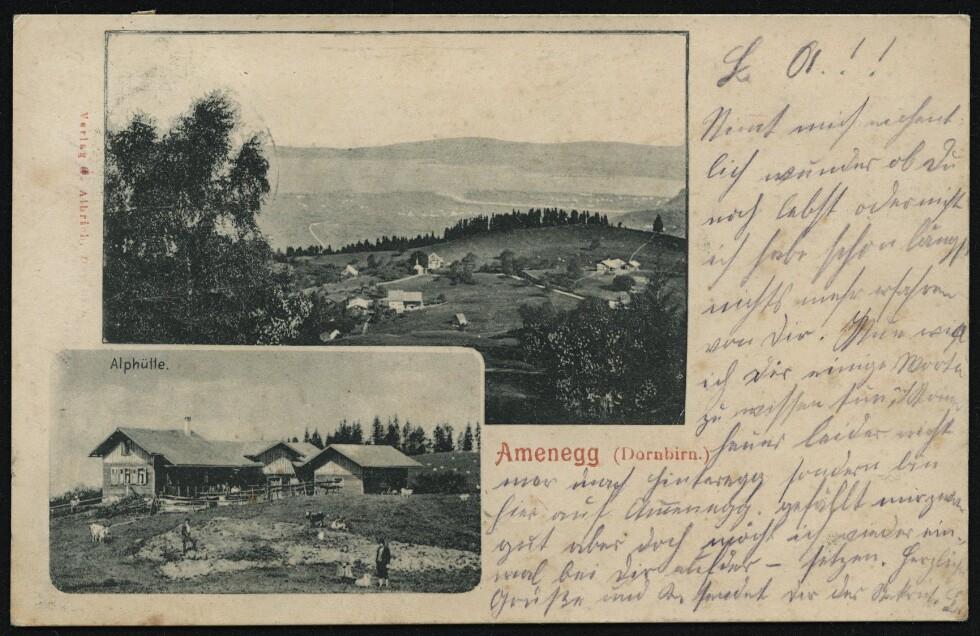 Verlag A. Albrich, D
Alphütte.
Amenegg (Dornbirn.)
L. O!!
Nimt mich nehent-
lich wunder ob Du
noch lebst oder nicht
ich habe schon längst
nichts mehr erfahren
von Dir. Nun will
ich Dir einige Worte
zu wissen tun,
heuer leider nicht
mer nach Hinteregg sondern bin
hier auf Amenegg. gefällt mir zwar
gut aber doch möcht ich wieder ein-
mal bei Dir — sitzen. Herzlich
Grüße und sendet Dir der